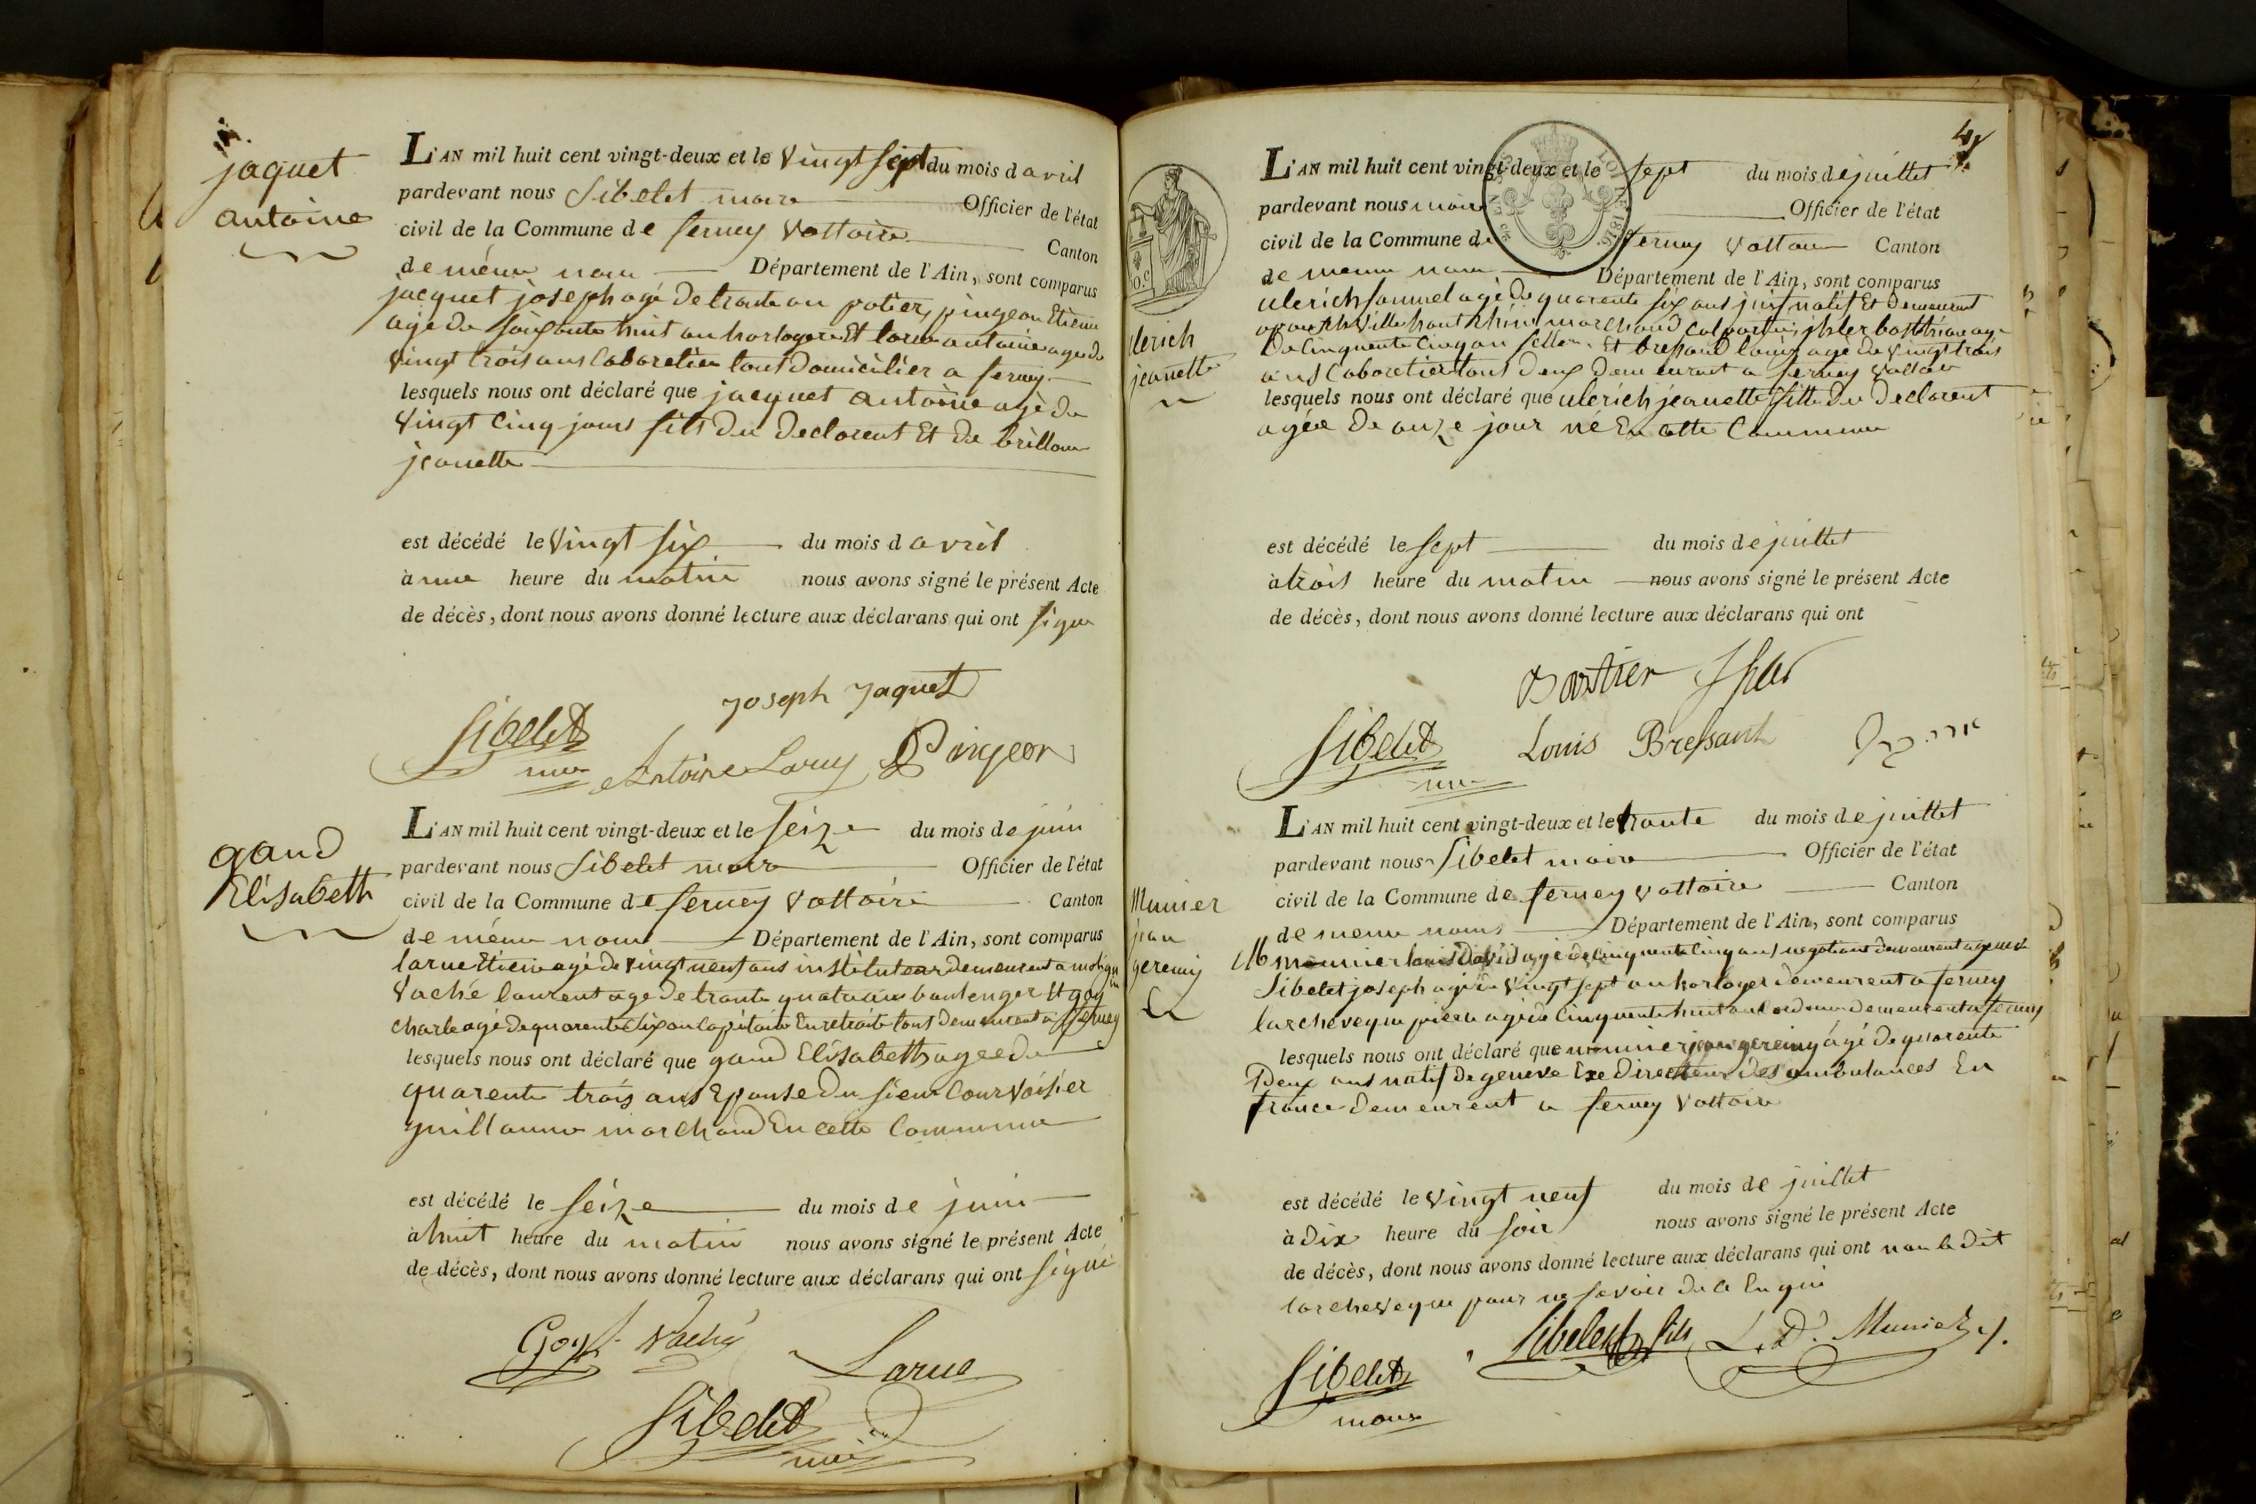 jaquet
antoine
L'AN mil huit cent vingt-deux et le vingt sept du mois d avril
pardevant nous Sibelet maire Officier de l'état
civil de la Commune de ferney Voltaire Canton
de méme nom Département de l'Ain, sont comparus
jacquet joseph agé de trante an potier, pingeon Etienne
agé de soixante huit an horloger Et larue antoine age de
vingt trois ans Cabaretier tout domicilier a ferney
lesquels nous ont déclaré que jacquet antoine agè de
vingt cinq jours fils du declarent Et de brillon
jeanette
est décédé le vingt six du mois d avril
à une heure du matin nous avons signé le présent Acte
de décès, dont nous avons donné lecture aux déclarans qui ont signe
Joseph Jaquet
Sibelet
Antoine Laruy Pingeon
gand
Elisabeth
L'AN mil huit cent vingt-deux et le seize du mois de juin
pardevant nous Sibelet maire Officier de l'état
civil de la Commune de ferney Voltaire Canton
de méme nom Département de l'Ain, sont comparus
larue Etiene agé de vingt neuf ans instituteur demeurent a
Vaché laurent age de trante quatre ans boulenger Et goy
charle agé de quarente six an Capitaine En retraite tout demeurent a ferney
lesquels nous ont déclaré que gand Elisabeth agee de
quarente trois ans Epouse du sieur Courvoisier
guillaume marchand En cette Commune
est décédé le seize du mois de juin
à huit heure du matin nous avons signé le présent Acte
de décès, dont nous avons donné lecture aux déclarans qui ont signé
Goy Vaché Larue
Sibelet
4
ulerich
jeanette
L'AN mil huit cent vingt-deux et le sept du mois de juillet
pardevant nous maire Officier de l'état
civil de la Commune de ferney Voltaire Canton
de meme nom Département de l'Ain, sont comparus
ulerich samuel agè de quarente six ans juif natif Et demeurent
haut Rhin marchand Colporteur,
de Cinquente Cinq an sellier Et bressand louis agé de vingt trois
ans Cabaretier tous deux demeurent a ferney Voltaire
lesquels nous ont déclaré que ulerich jeanette fille du declarent
agée de onze jour né En cette Commune
est décédé le sept du mois de juillet
à trois heure du matin nous avons signé le présent Acte
de décès, dont nous avons donné lecture aux déclarans qui ont
Sibelet Louis Bressant
Munier
jean
geremy
L'AN mil huit cent vingt-deux et le trante du mois de juillet
pardevant nous Sibelet maire Officier de l'état
civil de la Commune de ferney Voltaire Canton
de meme noms Département de l'Ain, sont comparus
M munier louis David agé de Cinquente Cinq ans negotiant demeurent a geneve
Sibelet joseph agé de vingt sept an horloger demeurent a ferney
larcheveque pierre agé de Cinquente huit an demeurent a ferney
lesquels nous ont déclaré que munier jean geremy âgé de quarente
Deux ans natif de geneve Exe directeur des ambulances En
france demeurent a ferney Voltaire
est décédé le vingt neuf du mois de juillet
à dix heure du soir nous avons signé le présent Acte
de décès, dont nous avons donné lecture aux déclarans qui ont non le dit
larcheveque pour ne savoir de ce Enquis
Sibelet fils L. D. Munier
Sibelet
maire